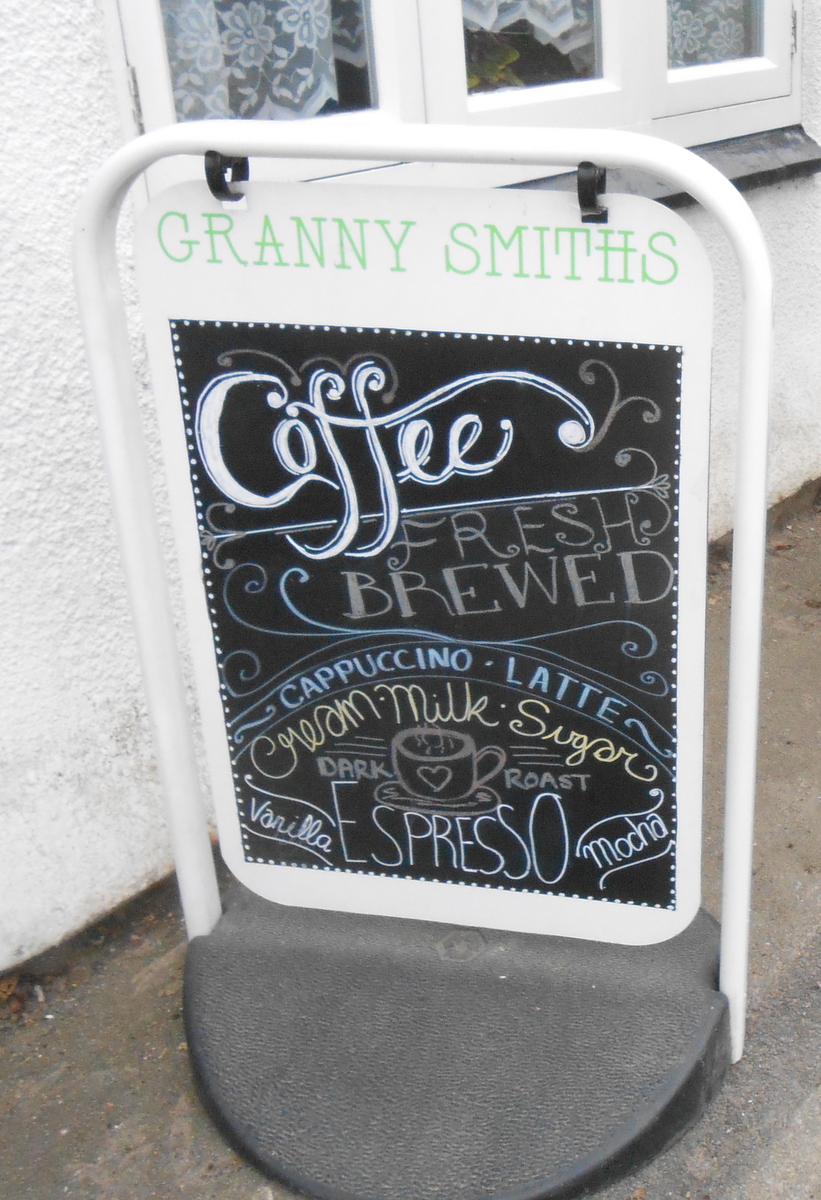 GRANNY SMITHS
Coffee
FRESH
BREWED
CAPPUCCINO · LATTE
Cream · Milk · Sugar
DARK ROAST
Vanilla ESPRESSO Mocha